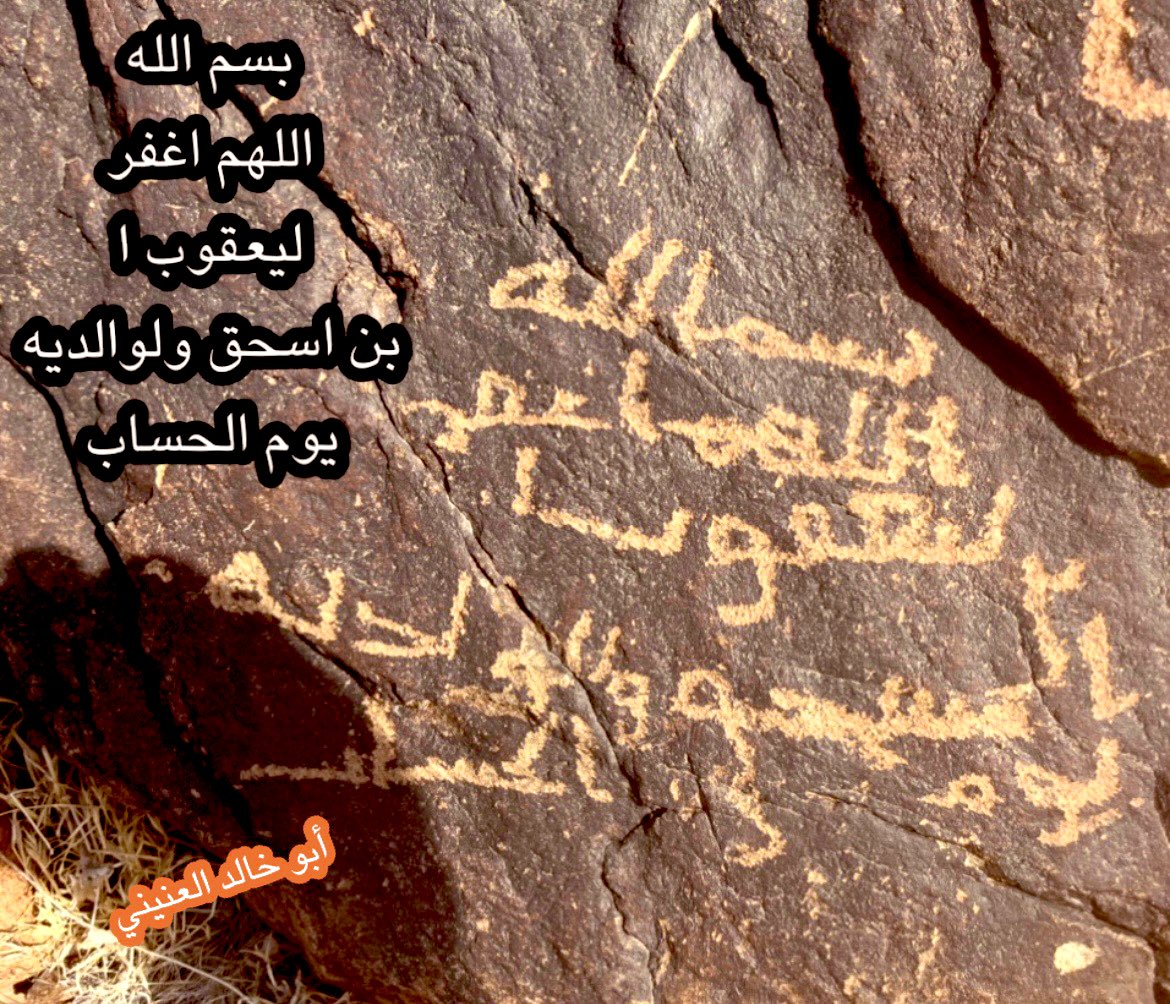 بسم الله
اللهم اغفر
ليعقوب ا
بن اسحق ولوالديه
يوم الحساب
بسم الله
اللهم اغفر
ليعقوب ا
بن اسحق ولوالديه
يوم الحساب
أبو خالد العنيني